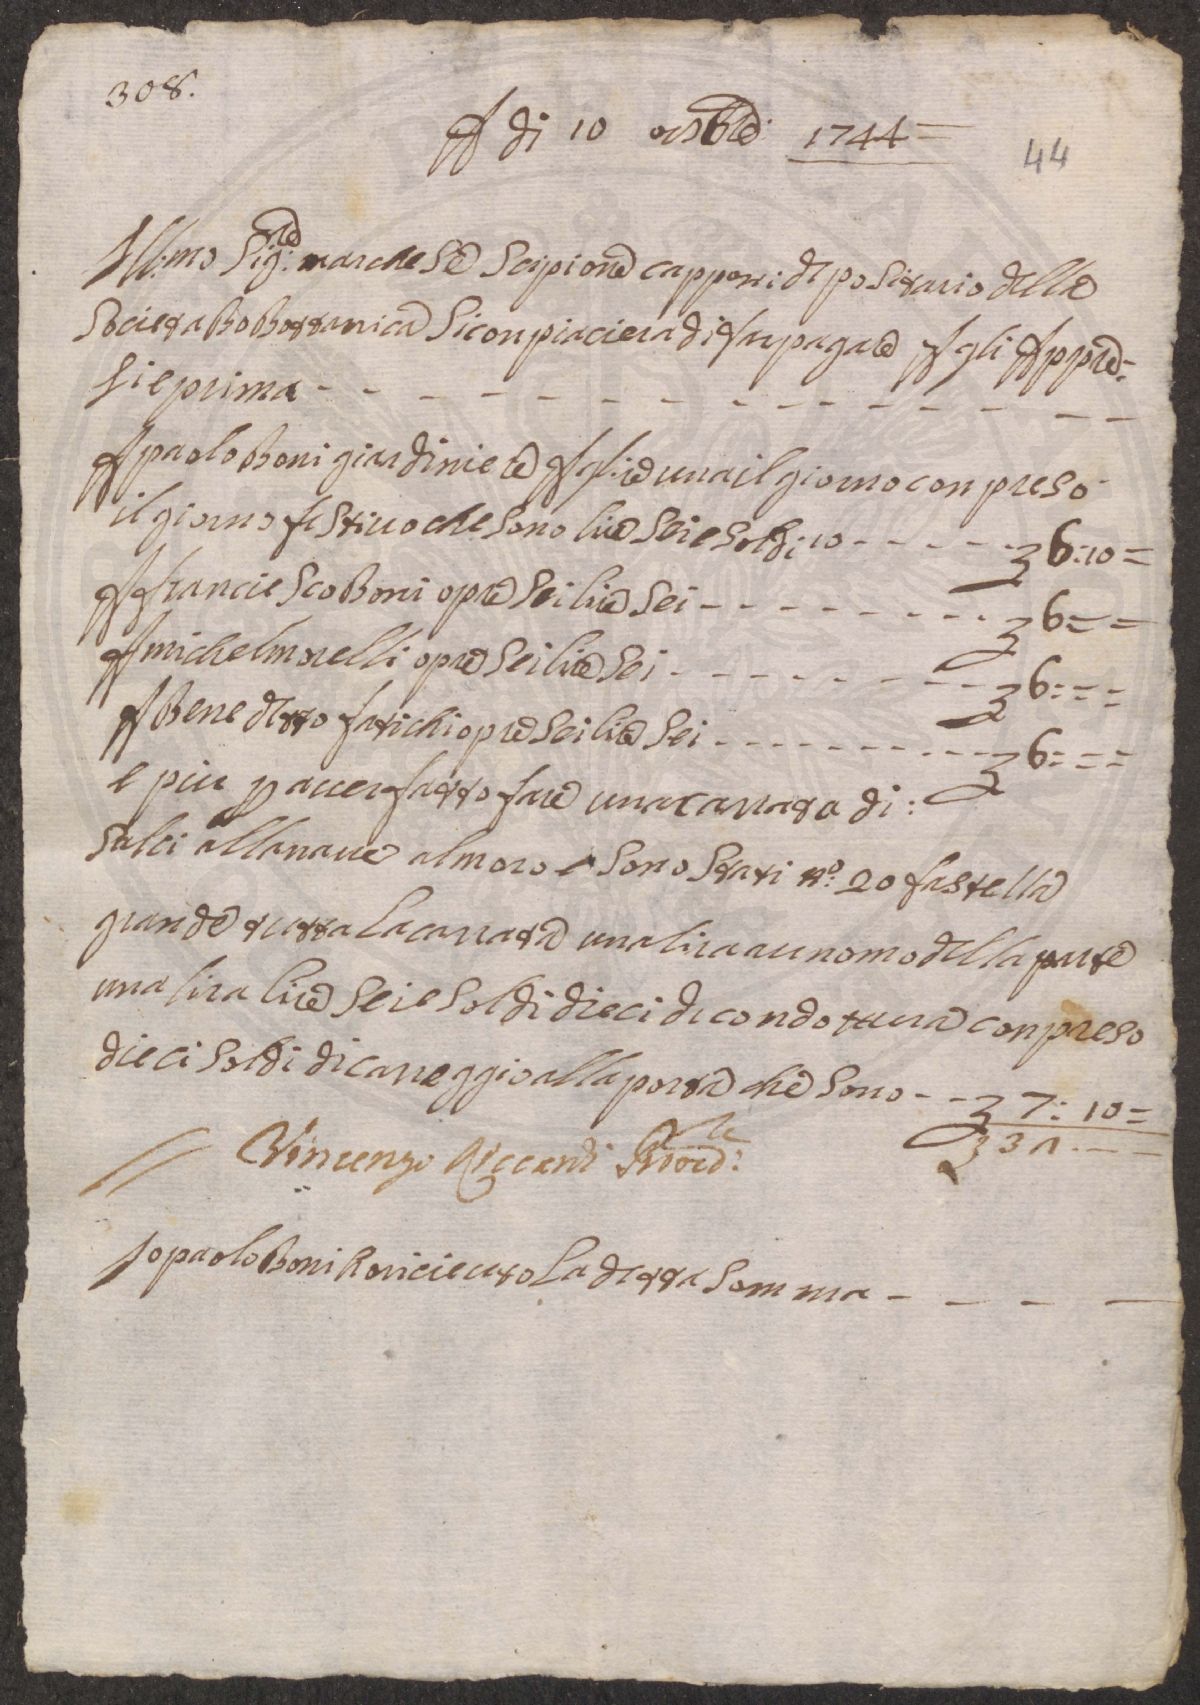 308.
A di 10 ottobre: 1744=
44
Ill:mo Sig:re marchese Scipione capponi depositario della
Societa Bobottanica Si conpiaciera di far pagare A gli Appre-
Sie prima - - - - - - - - - - - - - -
A paolo Boni giardiniere A glire una il giorno conpreso
il giorno festiuo che Sono lire Sei e Soldi: 10 - - - - - 6:10=
A francieSco Boni opre Sei lire Sei - - - - - - - - - 6= =
A michel morelli opre Sei lire Sei - - - - - - - - - 6:= =
A Benedetto fatichi opre Sei lire Sei - - - - - - - - - - 6:= =
e piu p auer fatto fare una carrata di:
Salci alla naue al moro e Sono Stati no: 20 fastella
grande tutta La carrata una lira a un omo della parte
una lira lire Sei e Soldi dieci di condottura conpreso
dieci Soldi di careggio alla porta che Sono - - 7: 10=
32 - - -
Vincenzo Riccardi Provre:
Io paolo Boni o riceiuto La detta Somma - - - -